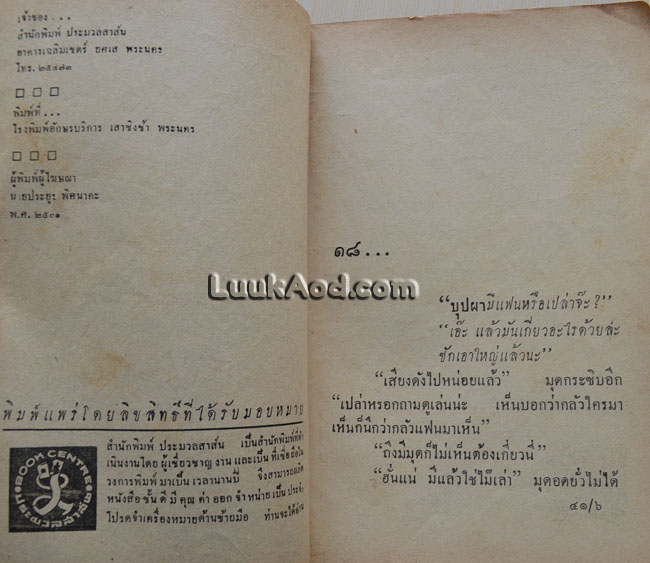 เจ้าของ . . .
สำนักพิมพ์ ประมวลสาส์น
อาคารเฉลิมเขตร์ ยศเส พระนคร
โทร. ๒๕๔๗๓
พิมพ์ที่ . . .
โรงพิมพ์อักษรบริการ เสาชิงช้า พระนคร
ผู้พิมพ์ผู้โฆษณา
นายประยูร พิศนาคะ
พ.ศ. ๒๕๐๑
พิมพ์แพร่โดยลิขสิทธิ์ที่ได้รับมอบหมาย
สำนักพิมพ์ ประมวลสาส์น เป็นสำนักพิมพ์ที่ดำ
เนินงานโดย ผู้เชี่ยวชาญ งาน และเป็น ที่เชื่อ ถือใน
วงการพิมพ์ มาเป็น เวลานานปี จึงสามารถผลิต
หนังสือ ชั้น ดี มี คุณ ค่า ออก จำหน่าย เป็น ประจำ
โปรดจำเครื่องหมายด้านซ้ายมือ ท่านจะได้อ่าน
BOOK CENTRE
ประมวลสาส์น
LuukAod.com
๑๘...
“บุปผามีแฟนหรือเปล่าจ๊ะ?”
“เอ๊ะ แล้วมันเกี่ยวอะไรด้วยล่ะ
ซักเอาใหญ่แล้วนะ”
“เสียงดังไปหน่อยแล้ว” มุดกระซิบอีก
“เปล่าหรอกถามดูเล่นน่ะ เห็นบอกว่ากลัวใครมา
เห็นก็นึกว่ากลัวแฟนมาเห็น”
“ถึงมีมุดก็ไม่เห็นต้องเกี่ยวนี่”
“ฮั่นแน่ มีแล้วใช่ไม๊เล่า” มุดอดยั่วไม่ได้
๔๑/๖